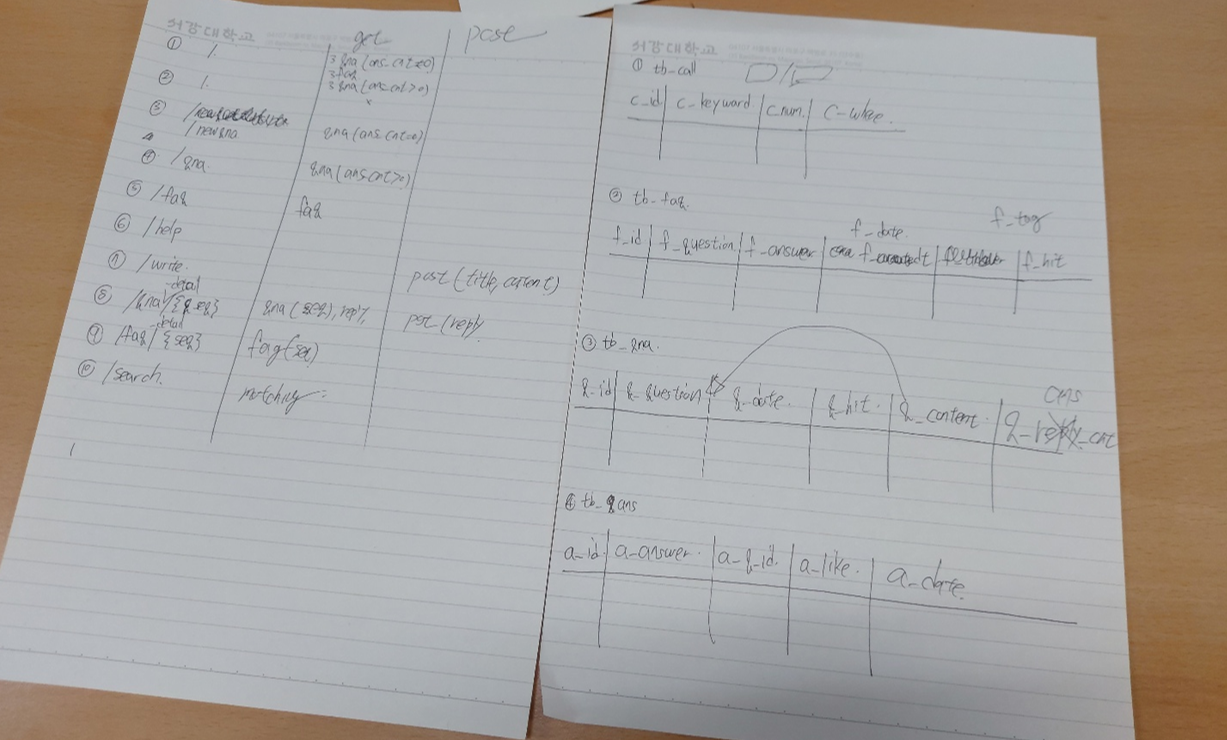 서강대학교
get post
① /. 3 qna (ans.cnt=0)
3 faq
3 qna (ans.cnt>0)
② /. x
③ /newqna qna (ans.cnt=0)
④ /qna qna (ans.cnt>0)
⑤ /faq faq
⑥ /help
⑦ /write post (title, content)
-detail
⑧ /qna/{q_seq} qna (seq), reply, post (reply
-detail
⑨ /faq/{seq} faq(seq)
⑩ /search. matching
서강대학교
① tb-call
c_id c_keyword c_num c_
② tb-faq.
f_date. f_tag
f_id f_question f_answer f_hit
③ tb_qna.
ans
q_id q_question q_date. q_hit. q_content. q_ _cnt
④ tb_ans
a_id a_answer. a_q_id. a_like. a_date.